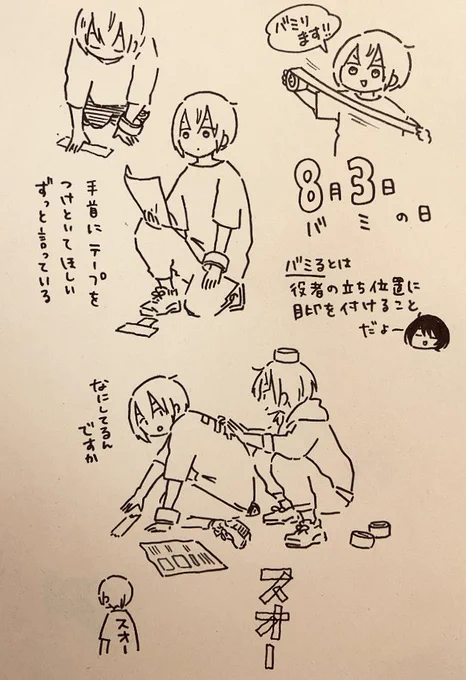 バミり
ます!!
8月3日
バミの日
バミるとは
役者の立ち位置に
目印を付けること
だよー
手首にテープを
つけといてほしい
ずっと言っている
なにしてるん
ですか
スオー
スオー